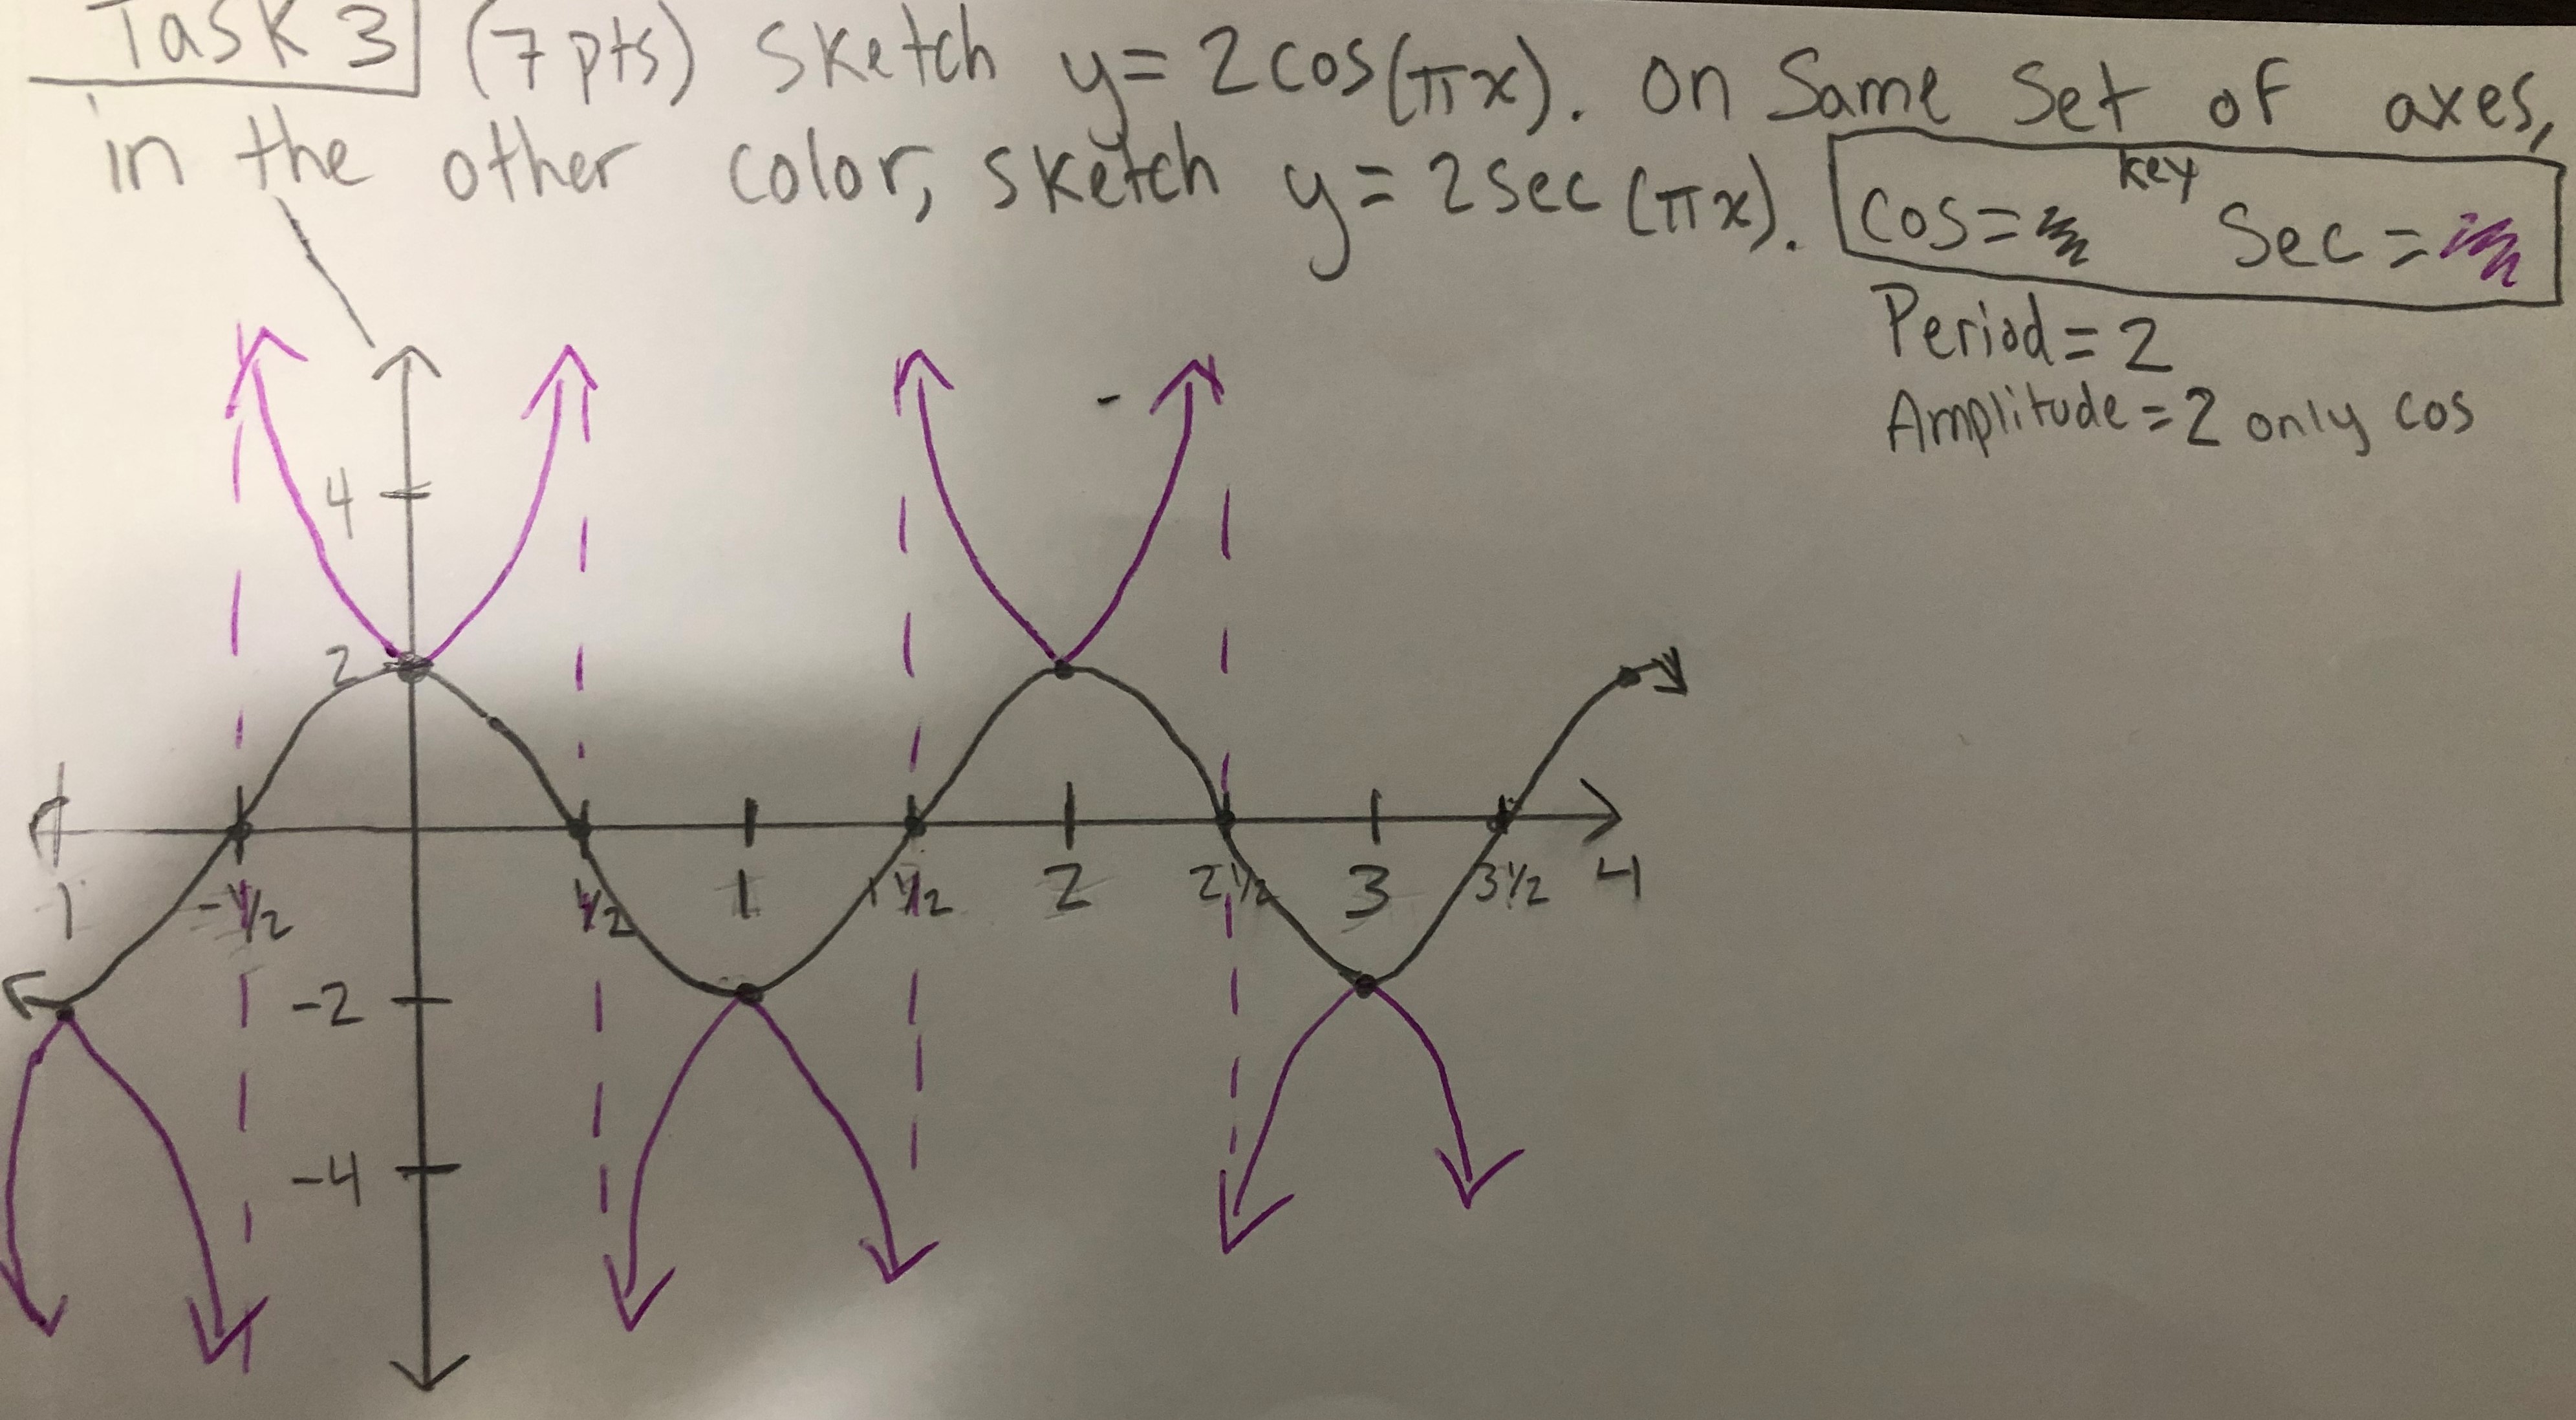 Task 3 (7 pts) Sketch y = 2cos(πx). On Same Set of axes,
in the other color, sketch y = 2sec(πx).
key
Cos = Sec =
Period = 2
Amplitude = 2 only cos
4
2
1 -1/2 1/2 1 1 1/2 2 2 1/2 3 3 1/2 4
-2
-4